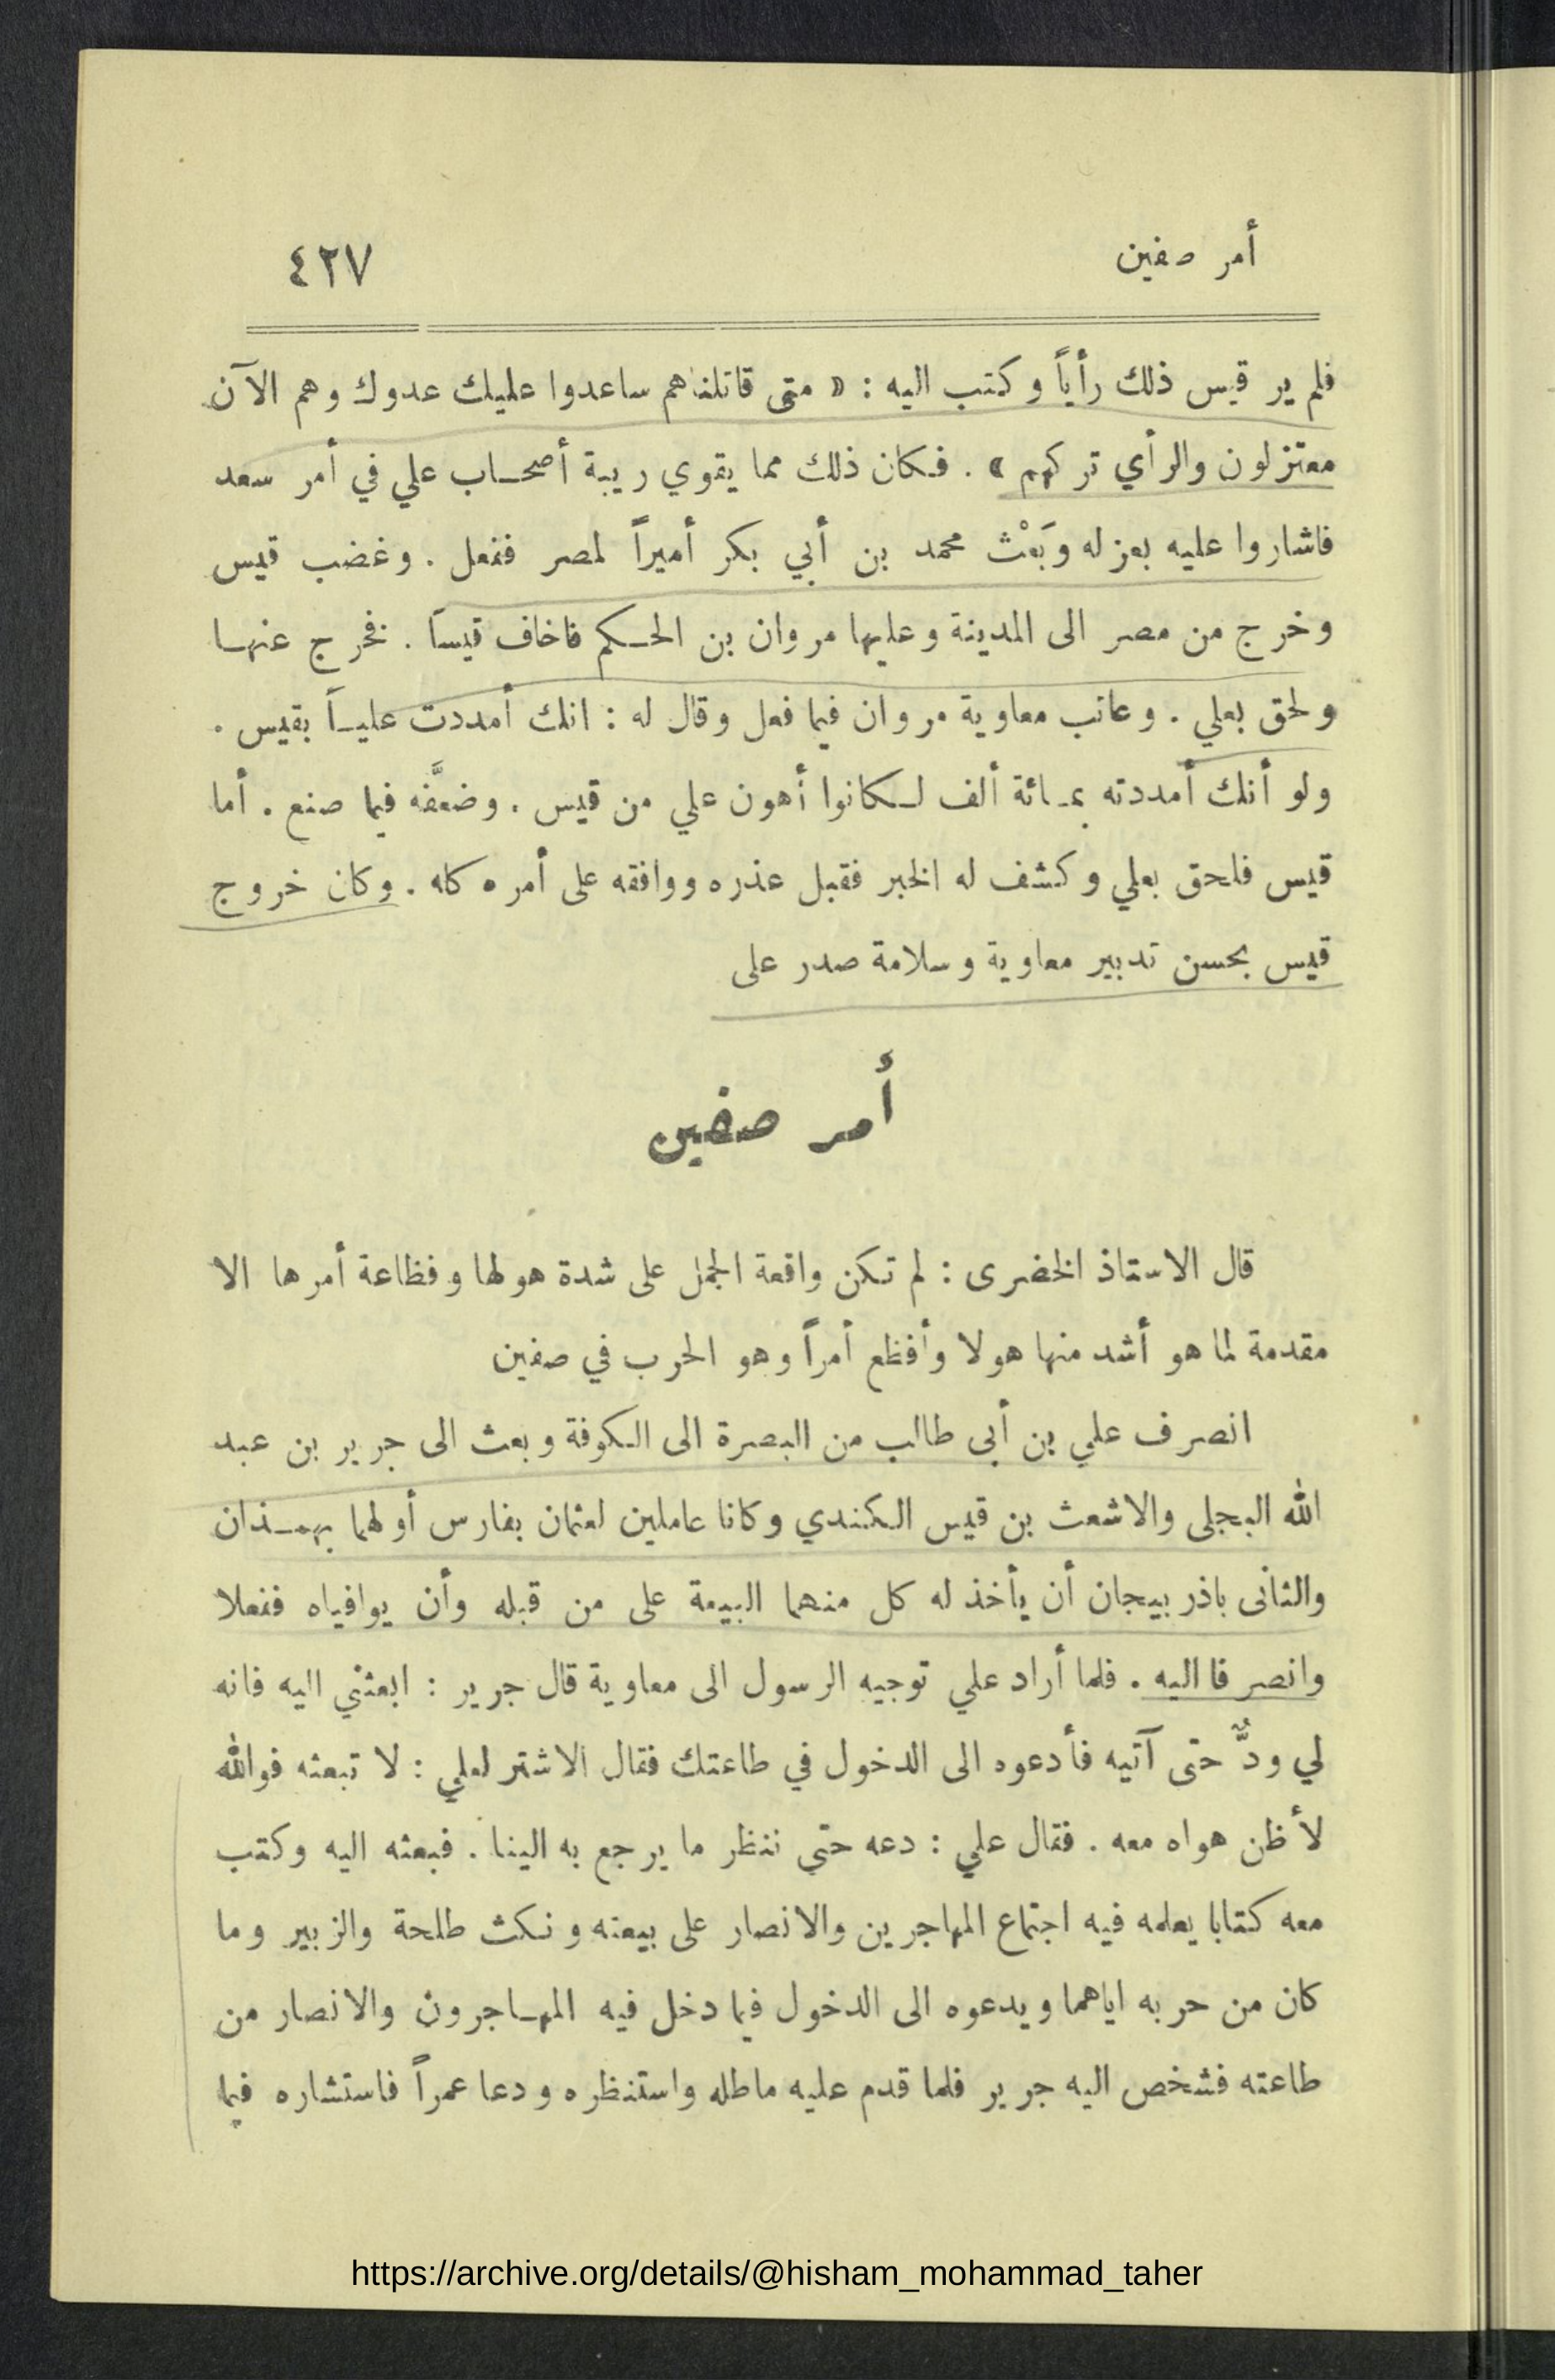 أمر صفين ٤٢٧
فلم ير قيس ذلك رأياً وكتب اليه : « متى قاتلناهم ساعدوا عليك عدوك وهم الآن
معتزلون والرأي تركهم » . فكان ذلك مما يقوي ريبة أصحاب علي في أمر سعد
فاشاروا عليه بعزله وبَعْث محمد بن أبي بكر أميراً لمصر ففعل . وغضب قيس
وخرج من مصر الى المدينة وعليها مروان بن الحكم فاخاف قيساً . فخرج عنها
ولحق بعلي . وعاتب معاوية مروان فيما فعل وقال له : انك أمددت علياً بقيس .
ولو أنك أمددته بمائة ألف لكانوا أهون علي من قيس . وضعَّفه فيما صنع . أما
قيس فلحق بعلي وكشف له الخبر فقبل عذره ووافقه على أمره كله . وكان خروج
قيس بحسن تدبير معاوية وسلامة صدر على
أمر صفين
قال الاستاذ الخضرى : لم تكن واقعة الجمل على شدة هولها وفظاعة أمرها الا
مقدمة لما هو أشد منها هولا وأفظع أمراً وهو الحرب في صفين
انصرف علي بن أبى طالب من البصرة الى الكوفة وبعث الى جرير بن عبد
الله البجلى والاشعث بن قيس الكندي وكانا عاملين لعثمان بفارس أولهما بهمذان
والثانى باذر بيجان أن يأخذ له كل منهما البيعة على من قبله وأن يوافياه ففعلا
وانصرفا اليه . فلما أراد علي توجيه الرسول الى معاوية قال جرير : ابعثني اليه فانه
لي ودٌّ حتى آتيه فأدعوه الى الدخول في طاعتك فقال الاشتر لعلي : لا تبعثه فوالله
لأظن هواه معه . فقال علي : دعه حتى ننظر ما يرجع به الينا . فبعثه اليه وكتب
معه كتابا يعلمه فيه اجتماع المهاجرين والانصار على بيعته ونكث طلحة والزبير وما
كان من حربه اياهما ويدعوه الى الدخول فيما دخل فيه المهاجرون والانصار من
طاعته فشخص اليه جرير فلما قدم عليه ماطله واستنظره ودعا عمراً فاستشاره فيما
https://archive.org/details/@hisham_mohammad_taher